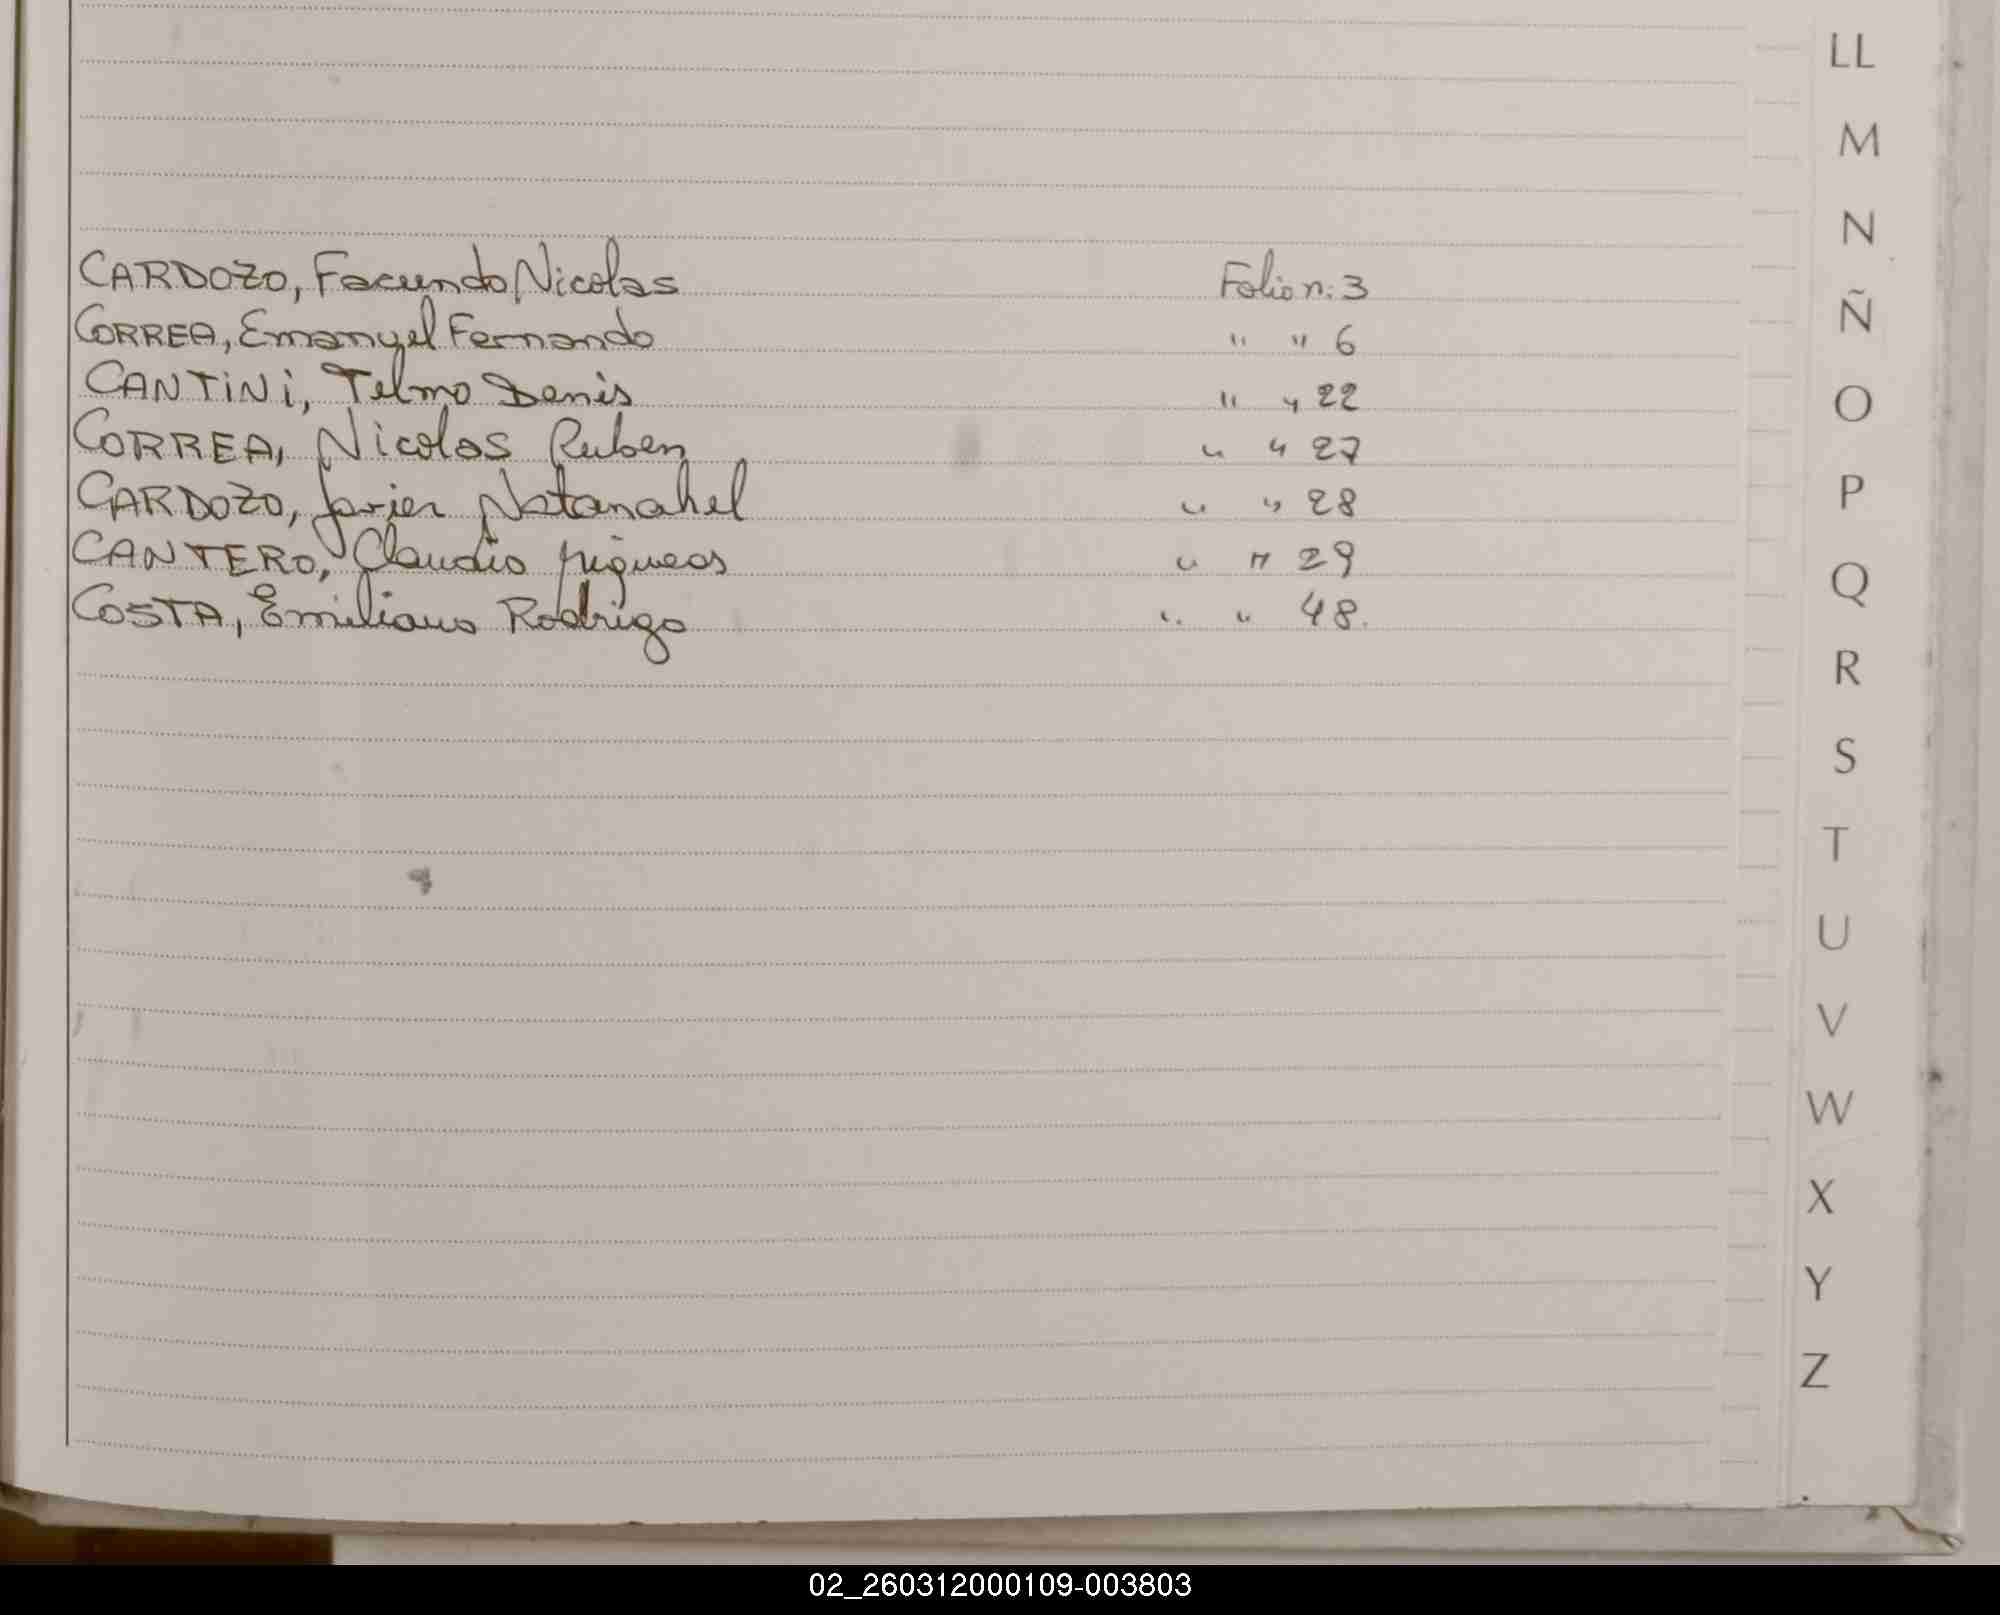 CARDOZO, Facundo Nicolas Folio n: 3
CORREA, Emanuel Fernando " " 6
CANTINI, Telmo Denis " " 22
CORREA, Nicolas Ruben " " 27
CARDOZO, Javier Natanahel " " 28
CANTERO, Claudio " " 29
COSTA, Emiliano Rodrigo " " 48.
LL
M
N
Ñ
O
P
Q
R
S
T
U
V
W
X
Y
Z
02_260312000109-003803